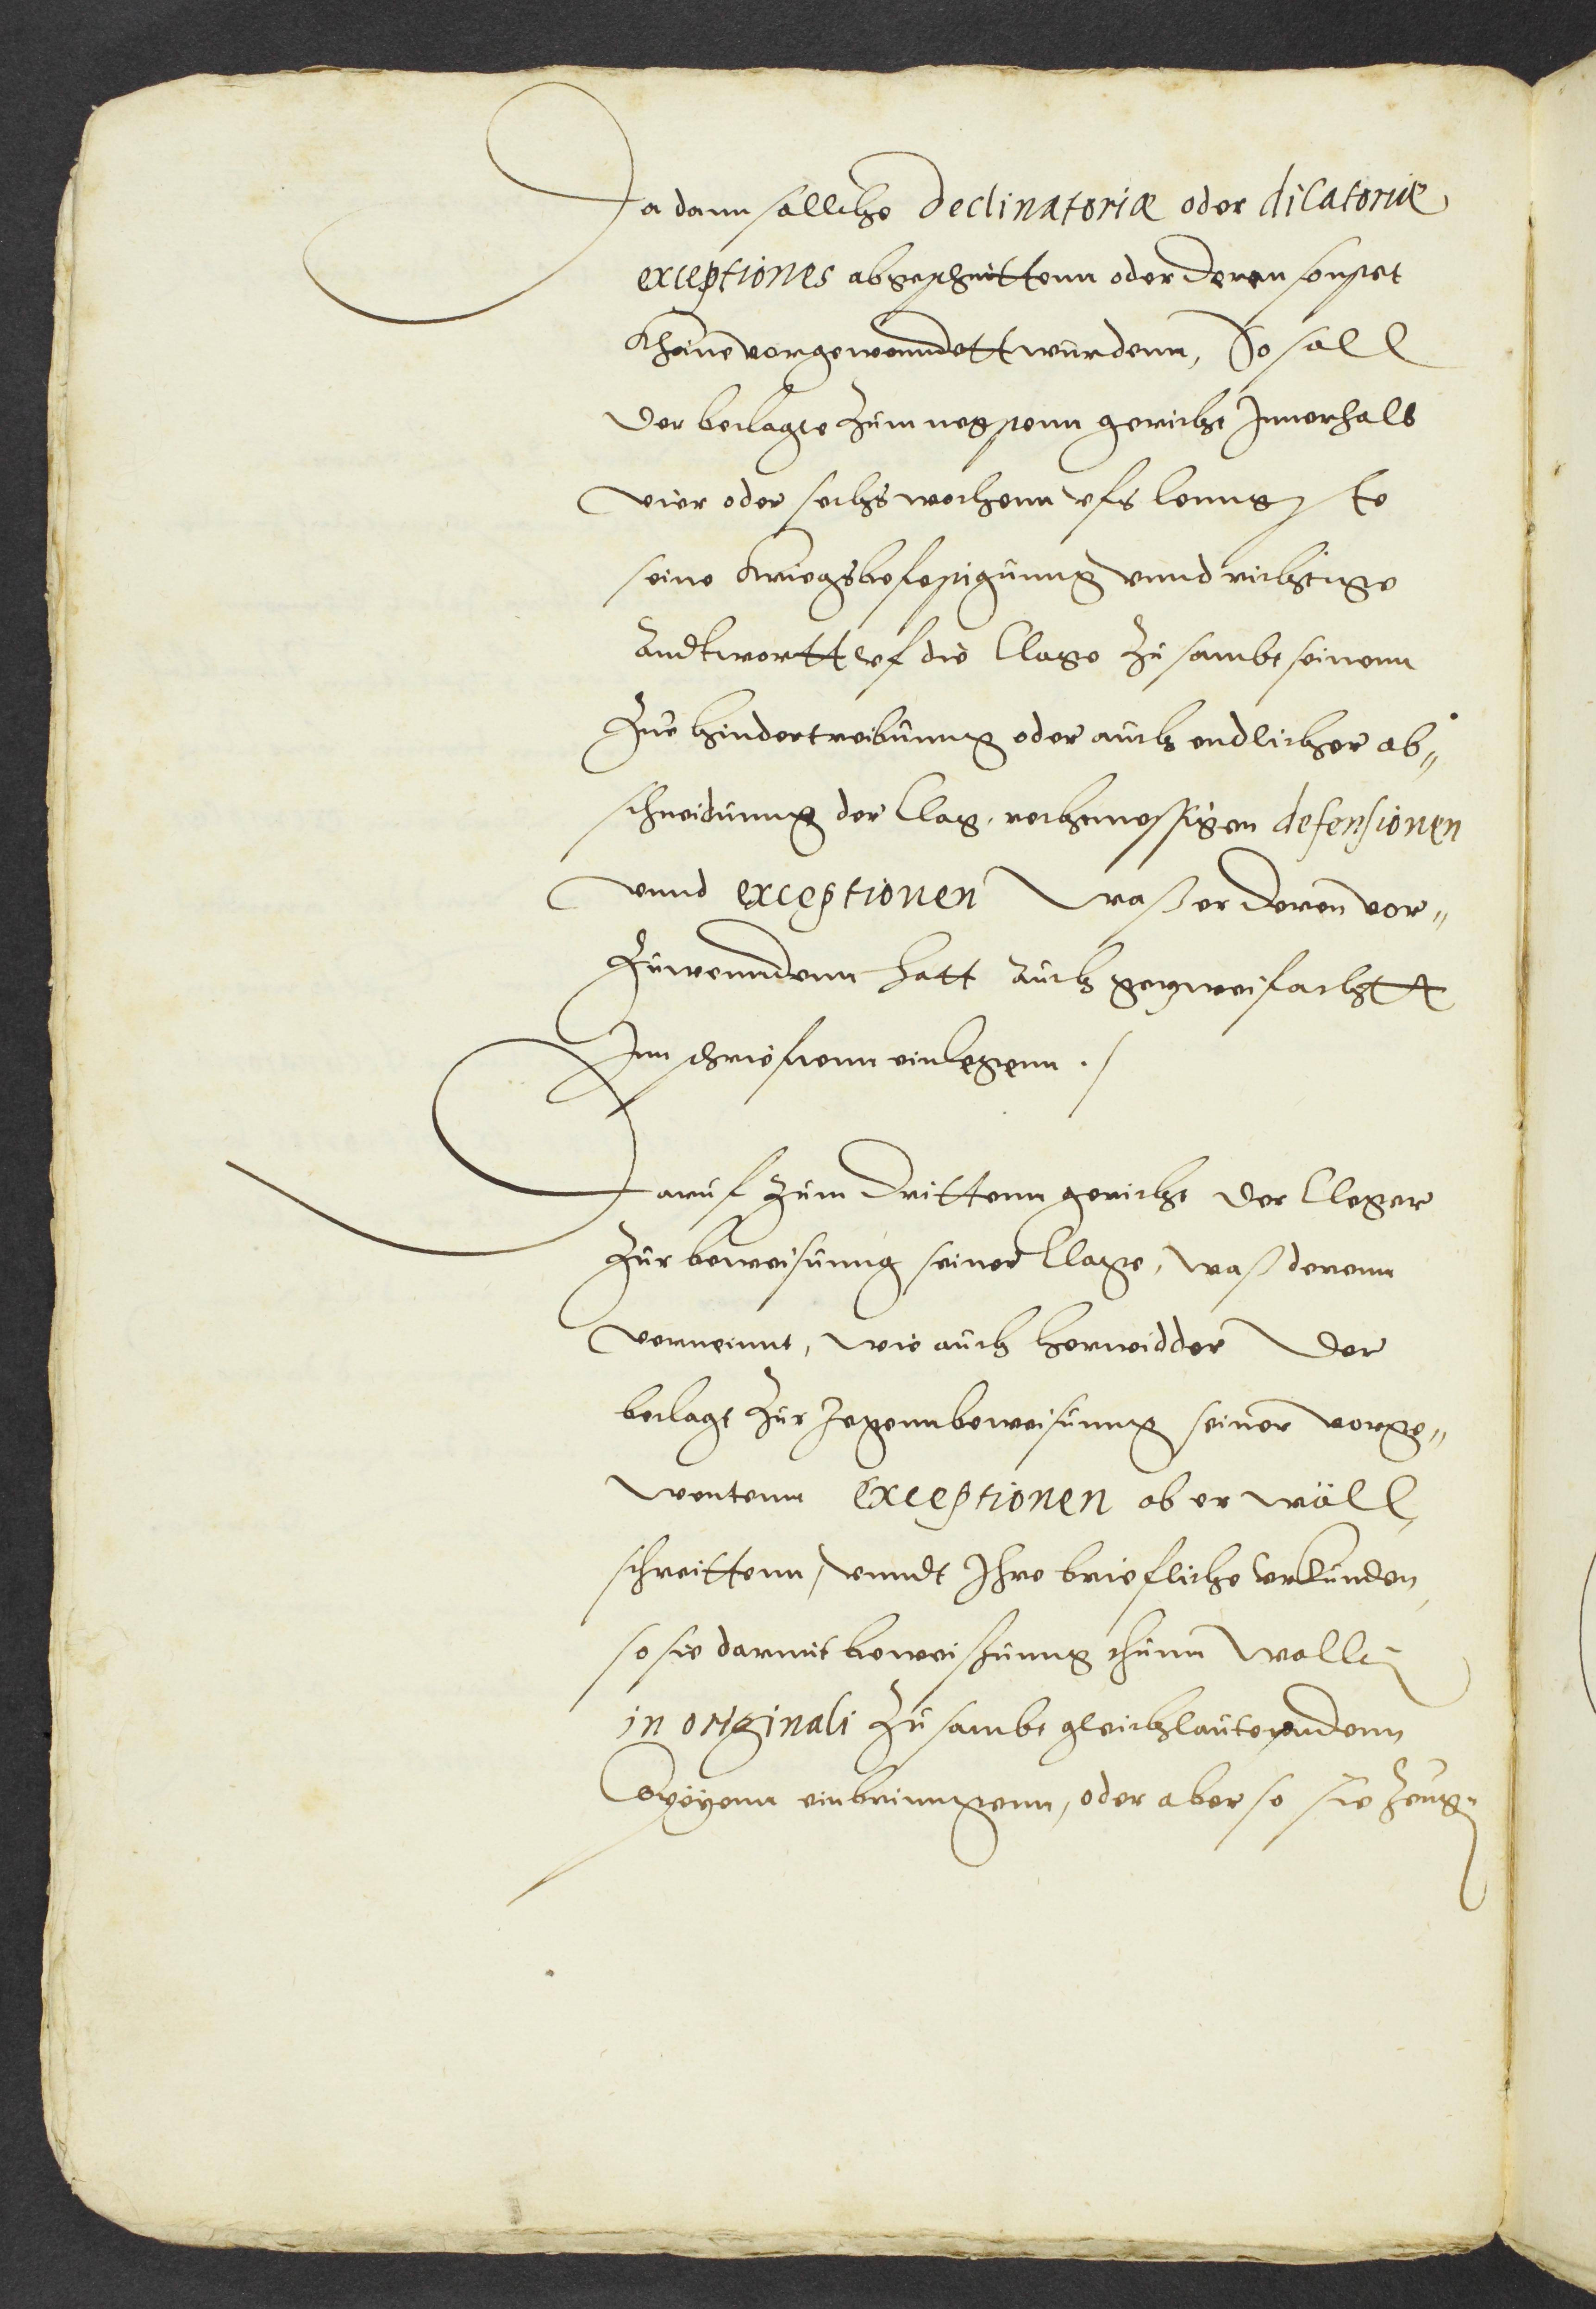 Da dann sollche declinatoriæ oder dilatoriæ
exceptiones abgeschnittenn oder deren sonstet
Kheine vorgewenndett wurdenn, So soll
der beclagte zum negstenn gericht Innerhalb
vier oder sechs wochenn vfs lenngste
seine Kriegsbefestigunng vnnd richtige
Andtwortt vf die Clage zu sambt seinenn
zur hindertreibunng oder auch endlicher ab„
schneidunng der Clag, rechtmessigen defensionen
vnnd exceptionen waß er deren vor„
zuwenndenn hatt auch gezweifachtt
Inn schrieftenn einlegenn ./
Daruf zum drittenn gericht der Cleger
zur beweisunng seiner Clage, waß derenn
verneint, wie auch herwidder der
beclagt zur Jegennbeweisunng seiner vorge„
wentenn exceptionen ob er wöll,
schreittenn, vnndt Ihre briefliche vrkunden,
so sie darmit beweissunng thunn wollen
in originali zu sambt gleichlautenndenn
Copeyenn einbrinngenn, oder aber so sie Zeug„